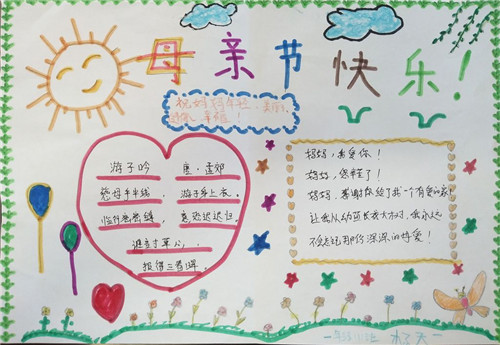 母亲节快乐！
祝妈妈年轻、美丽、
幸福！
游子吟 唐·孟郊
慈母手中线，游子身上衣。
临行密密缝，意恐迟迟归。
谁言寸草心，
报得三春晖。
妈妈，我爱你！
妈妈，您辛苦了！
妈妈，感谢你给了我一个有爱的家！
让我从幼苗长成大树，我永远
不会忘记那份深深的母爱！